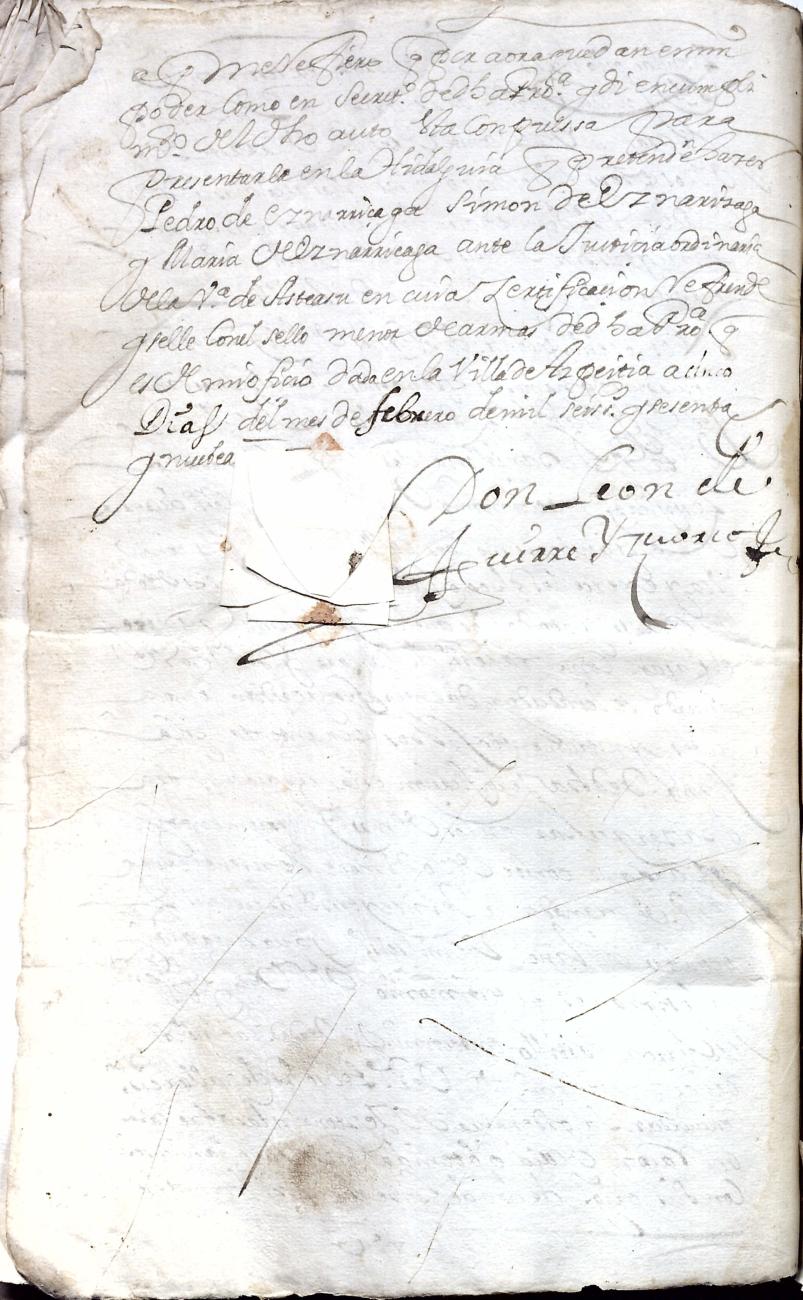 a q me refiero q por aora quedan en mi
poder como en Secret.º de dha Pro.ª y di en cumpli
m.º del dho auto esta compulsa para
presentarla en la Hidalguia q pretende hazer
Pedro de Eznarriçaga Simon de Eznarizaga
y Maria de Eznarriçaga ante la Justicia ordinaria
de la V.ª de Asteasu en cuia Zertificacion Refrende
y selle con el sello menor de armas de dha Pro.ª q
es de mi oficio dada en la Villa de Azpeitia a cinco
Dias del mes de febrero de mil seiss.º y sesenta
y nuebe a
Don Leon de
Aguirre Y Zuorce